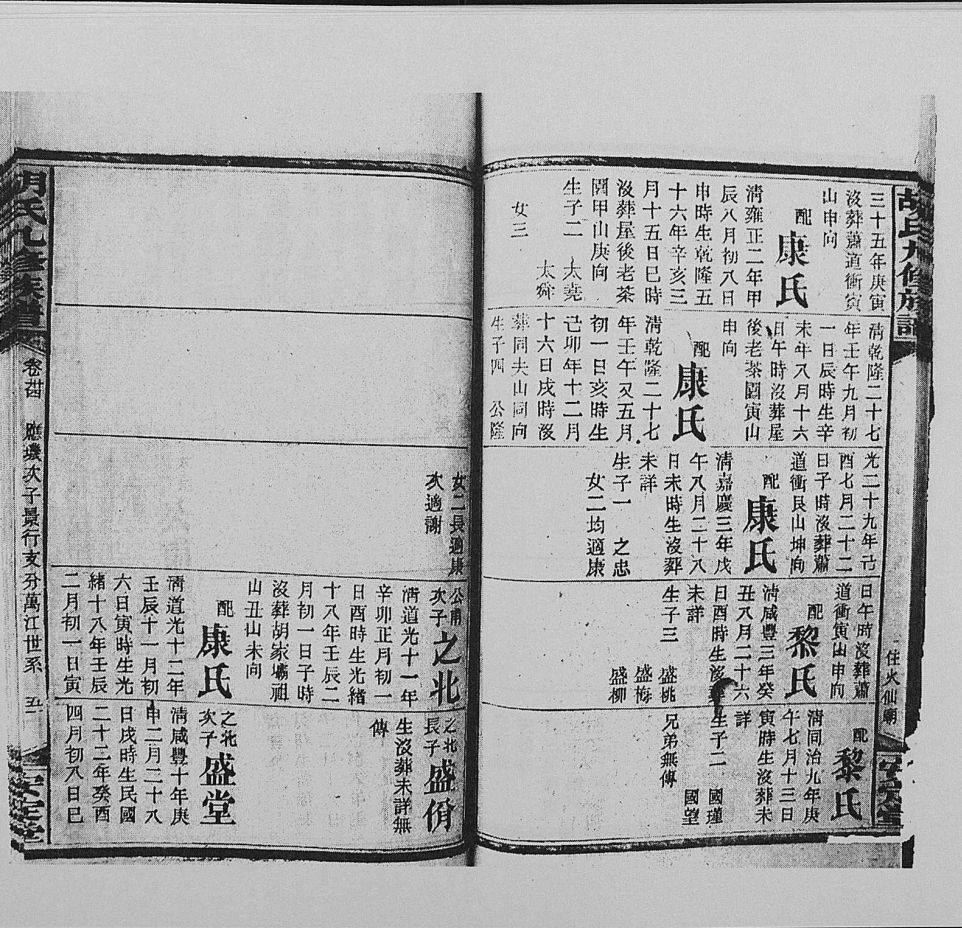 胡氏九修族譜
住火仙廟
安定堂
三十五年庚寅
沒葬蕭道衝寅
山申向
配
康氏
清雍正二年甲
辰八月初八日
申時生乾隆五
十六年辛亥三
月十五日巳時
沒葬屋後老茶
園甲山庚向
生子二 太堯
太舜
女三
清乾隆二十七
年壬午九月初
一日辰時生辛
未年八月十六
日午時沒葬屋
後老茶園寅山
申向
配
康氏
清乾隆二十七
年壬午又五月
初一日亥時生
己卯年十二月
十六日戌時沒
葬同夫山同向
生子四 公隆
光二十九年己
酉七月二十二
日子時沒葬蕭
道衝艮山坤向
配
康氏
清嘉慶三年戊
午八月二十八
日未時生沒葬
未詳
生子一 之忠
女二均適康
日午時沒葬蕭
道衝寅山申向
配
黎氏
清咸豐三年癸
丑八月二十六
日酉時生沒葬
未詳
生子三 盛桃
盛梅
盛柳
配
黎氏
清同治九年庚
午七月十三日
寅時生沒葬未
詳
生子二 國瑾
國望
兄弟無傳
女二長適康
次適謝
公甫
次子
之北
清道光十一年
辛卯正月初一
日酉時生光緒
十八年壬辰二
月初一日子時
沒葬胡家壩祖
山丑山未向
配
康氏
清道光十二年
壬辰十一月初
六日寅時生光
緒十八年壬辰
二月初一日寅
之北
長子
盛佾
生沒葬未詳無
傳
之北
次子
盛堂
清咸豐十年庚
申二月二十八
日戌時生民國
二十二年癸酉
四月初八日巳
胡氏九修族譜
卷廿
應璣次子景行支分萬江世系
五
安定堂